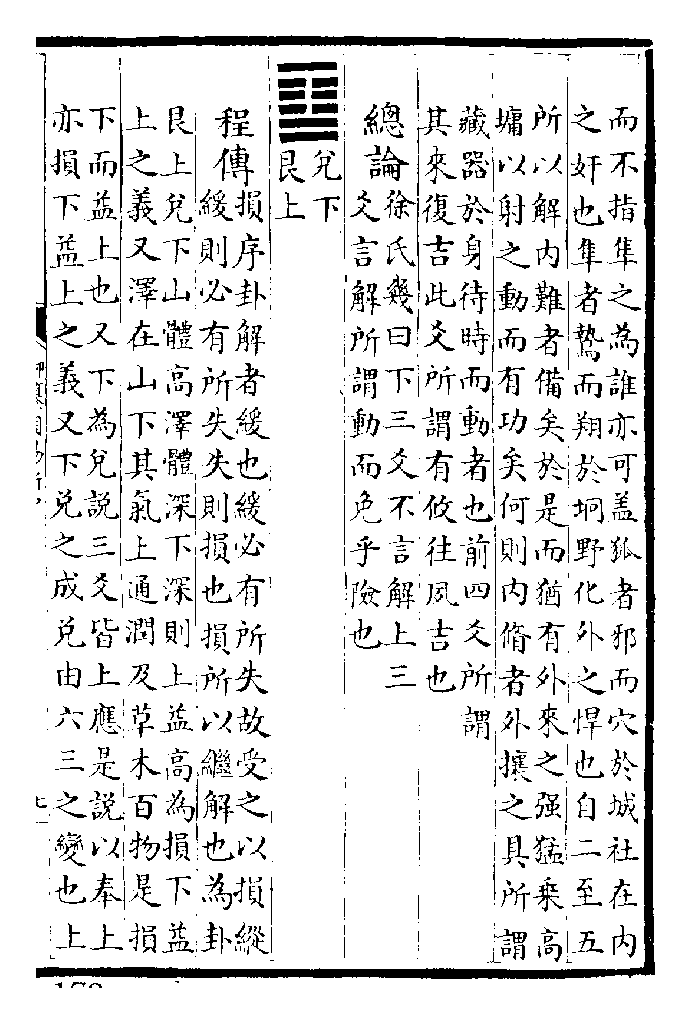 而不指隼之為誰亦可盖狐者邪而穴於城社在内
之奸也隼者鷙而翔於坰野化外之悍也自二至五
所以解内難者備矣於是而猶有外來之强猛乗高
墉以射之動而有功矣何則内脩者外攘之具所謂
藏器於身待時而動者也前四爻所謂
其來復吉此爻所謂有攸往夙吉也
總論徐氏幾曰下三爻不言解上三
爻言解所謂動而免乎險也
兌下
艮上
程傳損序卦解者緩也緩必有所失故受之以損縱
緩則必有所失失則損也損所以繼解也為卦
艮上兌下山體高澤體深下深則上益高為損下益
上之義又澤在山下其氣上通潤及草木百物是損
下而益上也又下為兌説三爻皆上應是説以奉上
亦損下益上之義又下兌之成兌由六三之變也上